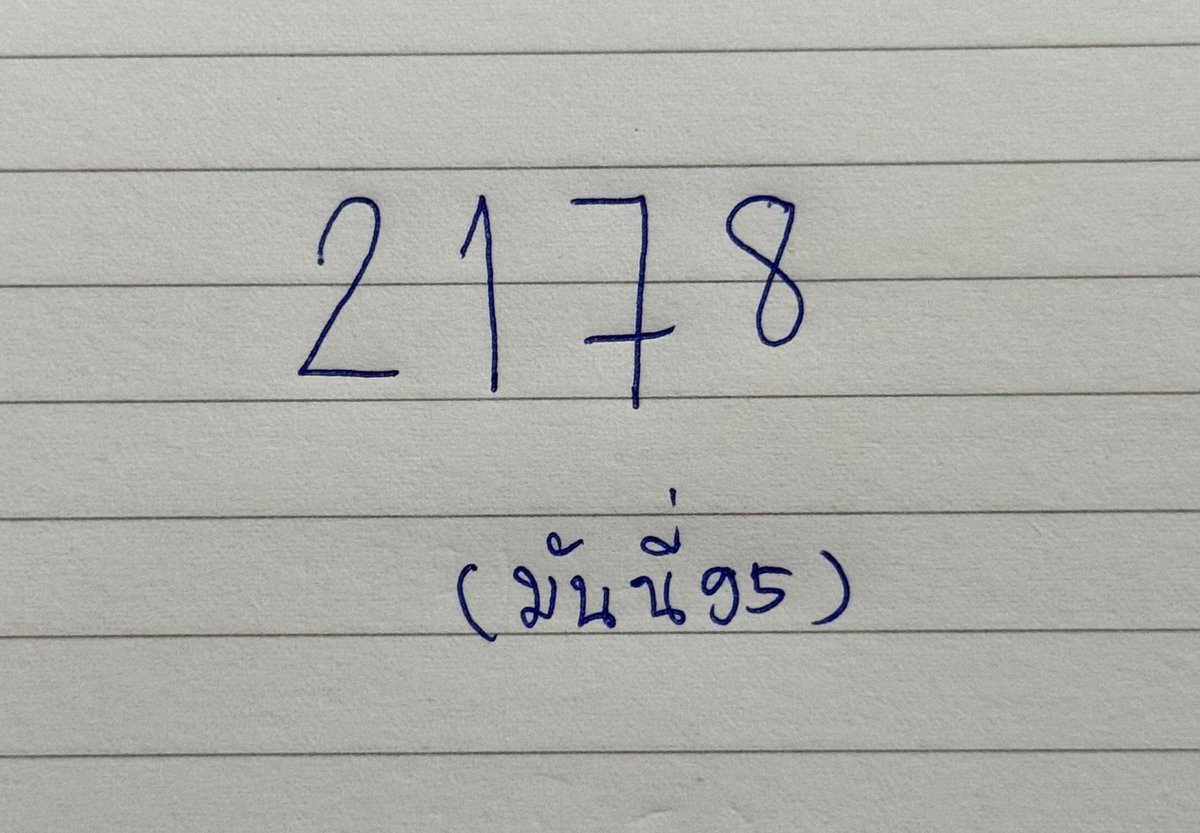 2178
(มันนี่95)